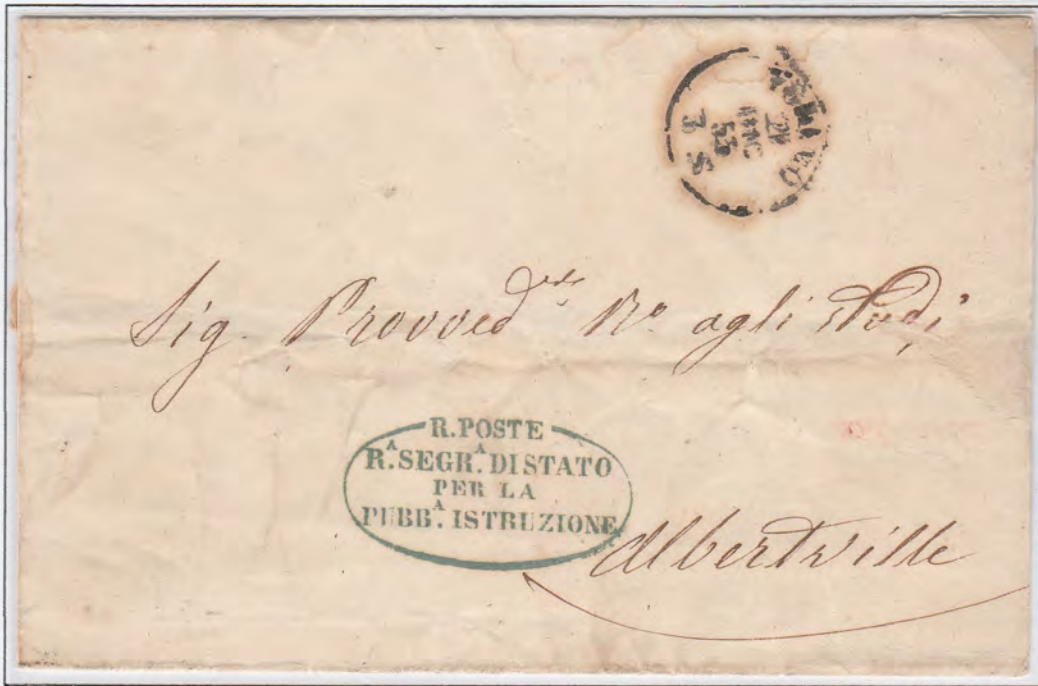 TORINO
DIC
53
3 S
Sig. Provved.re R.º agli Studj
R. POSTE
R.A SEGR.A DI STATO
PER LA
PUBB.A ISTRUZIONE
Albertville